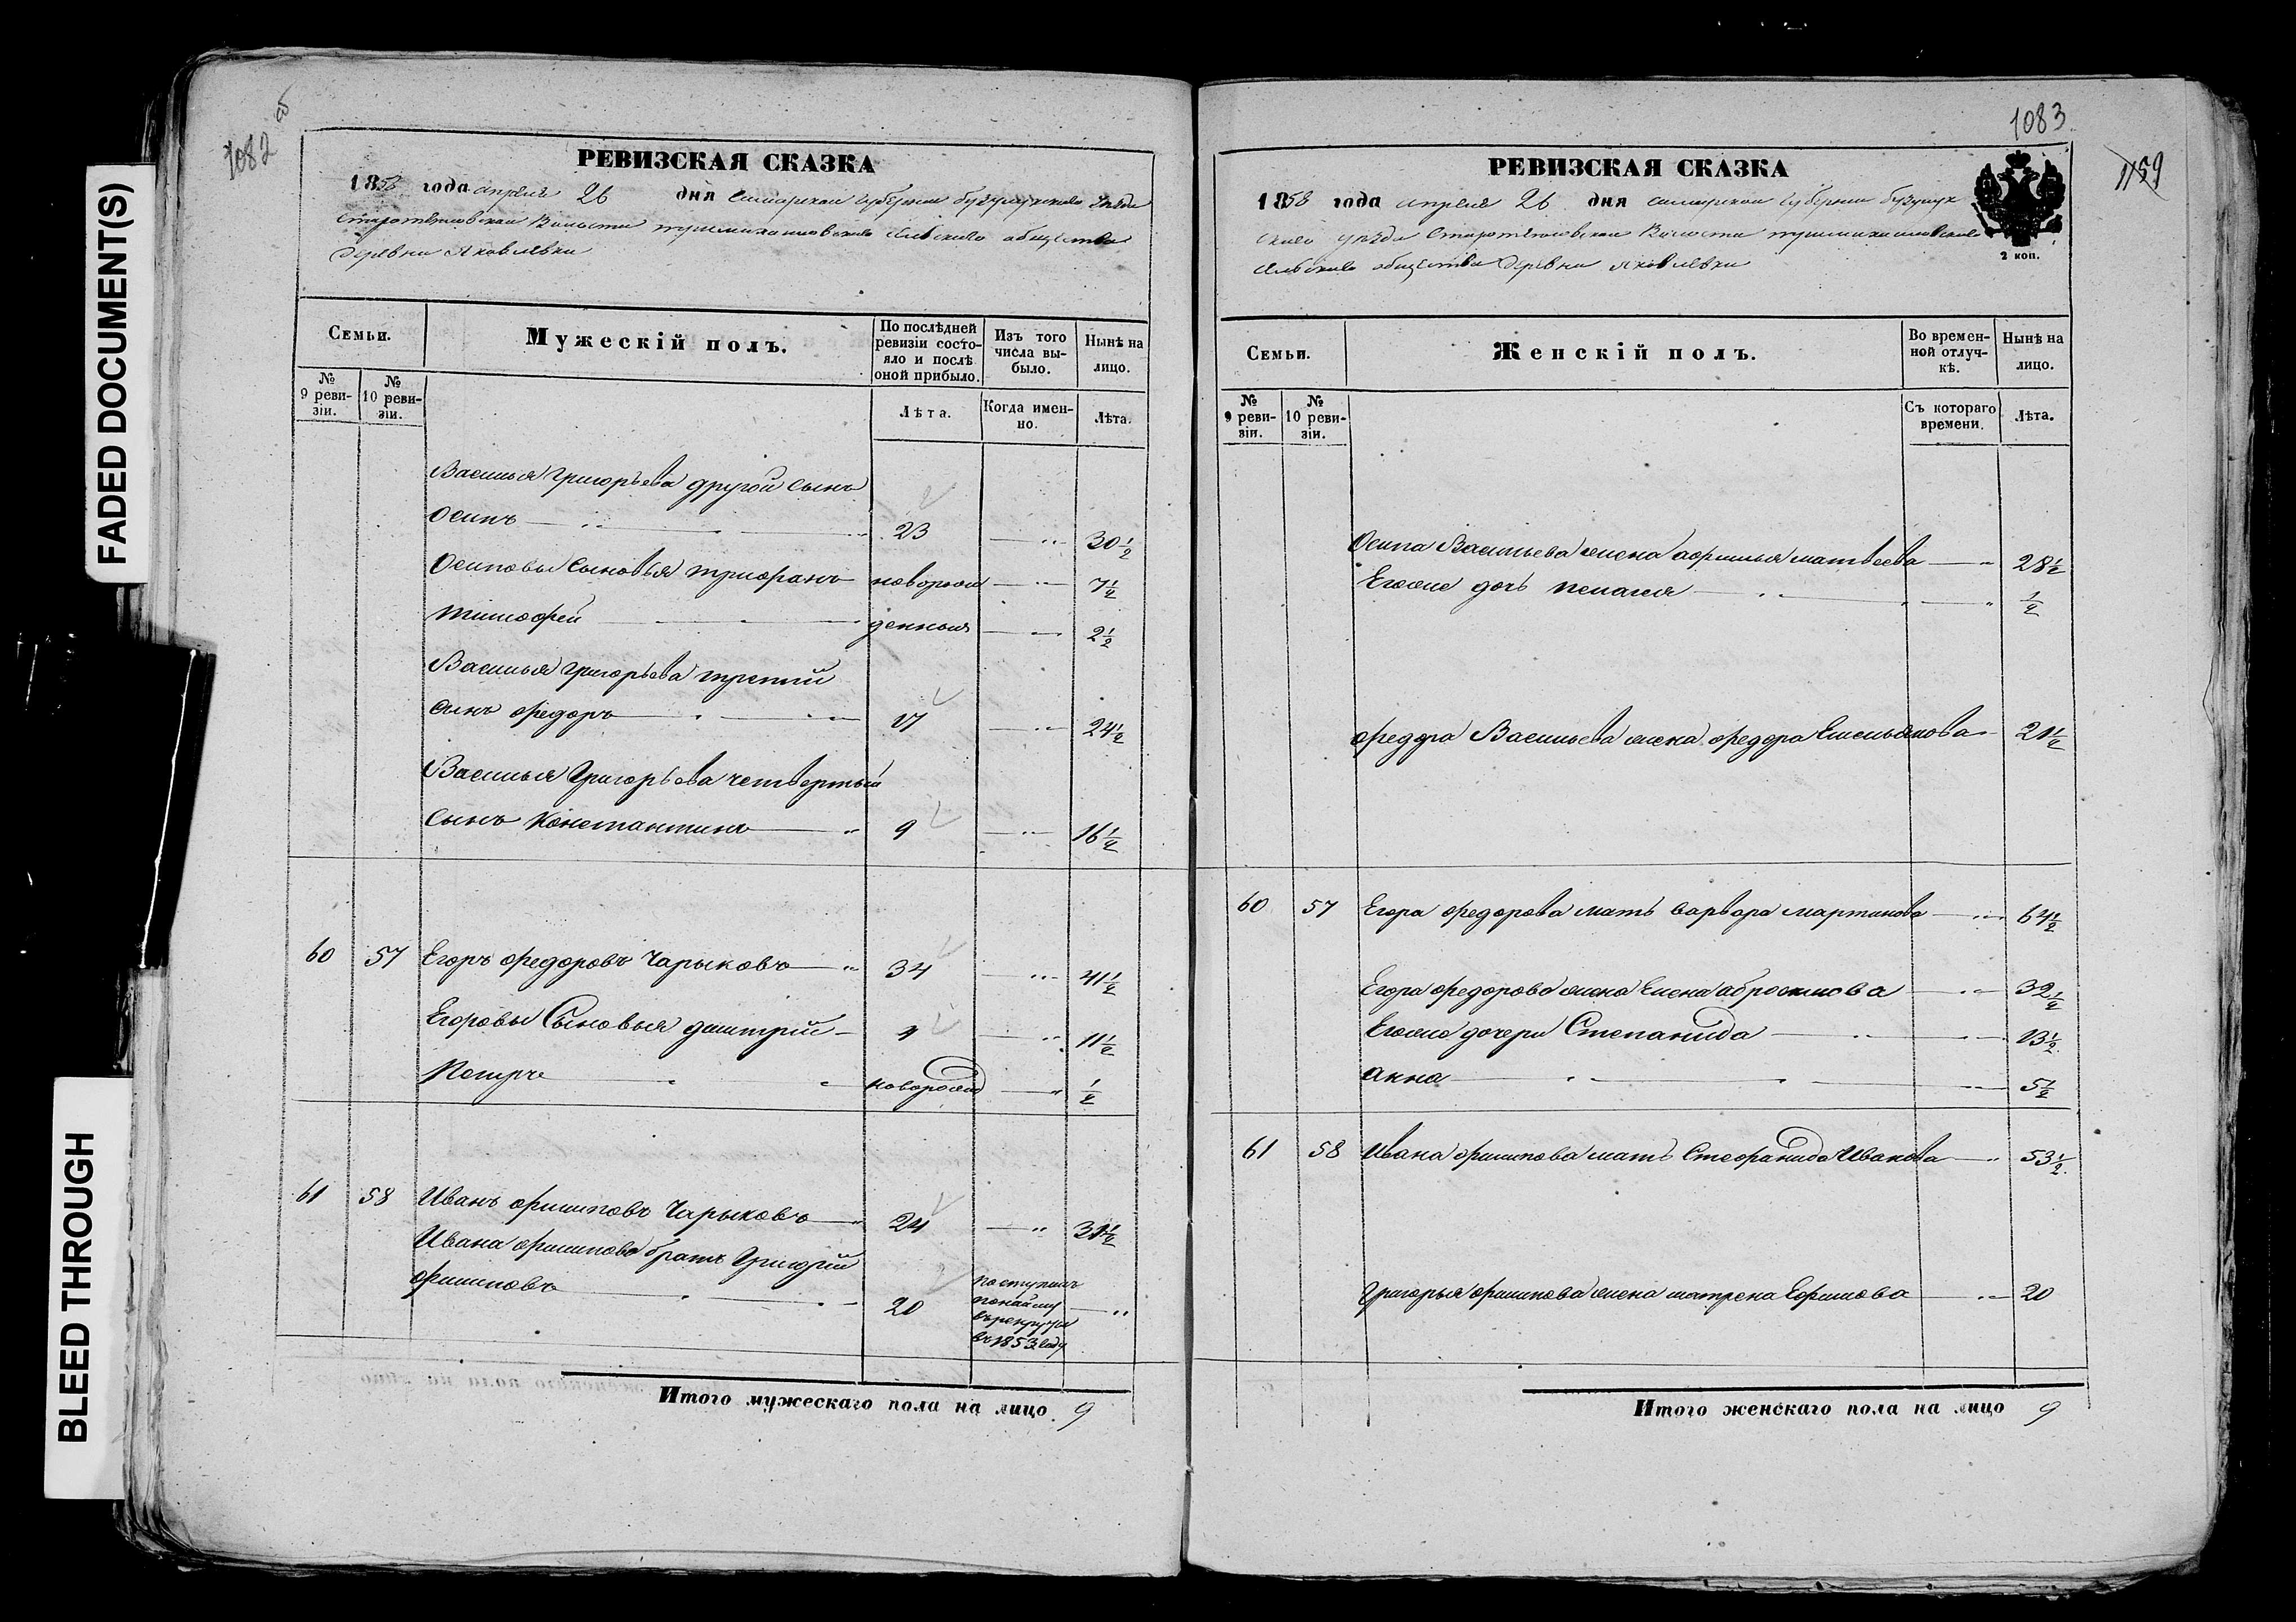 FADED DOCUMENT(S)
BLEED THROUGH
1082 об
РЕВИЗСКАЯ СКАЗКА
1858 года апреля 26 дня Самарской губернии Бугурусланского уезда
Волости сельского общества
деревни Яковлевки
Семьи.
Мужескій полъ.
По послѣдней ревизіи состояло и послѣ оной прибыло.
Изъ того числа выбыло.
Нынѣ на лицо.
№ 9 ревизіи.
№ 10 ревизіи.
Лѣта.
Когда именно.
Лѣта.
Василья Григорьева другой сынъ
Осипъ 23 30 1/2
Осиповы сыновья Трифонъ новорож 7 1/2
Тимофей денныя 2 1/2
Василья Григорьева третий
сынъ Федоръ 17 24 1/2
Василья Григорьева четвертый
сынъ Константинъ 9 16 1/2
60 57 Егоръ Федоровъ Чарыковъ 34 41 1/2
Егоровы Сыновья Дмитрий 4 11 1/2
Петръ новорожд 1/2
61 58 Иванъ Филиповъ Чарыковъ 24 31 1/2
Ивана Филипова братъ Григорий
Филиповъ 20 поступилъ
по найму
въ рекруты
въ 1853 году
Итого мужескаго пола на лицо 9
1083
1159
РЕВИЗСКАЯ СКАЗКА
2 коп.
1858 года апреля 26 дня Самарской губернии
уезда Волости
сельского общества деревни Яковлевки
Семьи.
Женскій полъ.
Во временной отлучкѣ.
Нынѣ на лицо.
№ 9 ревизіи.
№ 10 ревизіи.
Съ котораго времени.
Лѣта.
Осипа Васильева жена Афимья Матвеева 28 1/2
Егоже дочь Пелагея 1/2
Федора Васильева жена Федора Емельянова 21 1/2
60 57 Егора Федорова мать Варвара Мартинова 64 1/2
Егора Федорова жена Елена Абросимова 32 1/2
Егоже дочери Степанида 13 1/2
Анна 5 1/2
61 58 Ивана Филипова мать Стефанида Иванова 53 1/2
Григорья Филипова жена Матрена Ефимова 20
Итого женскаго пола на лицо 9